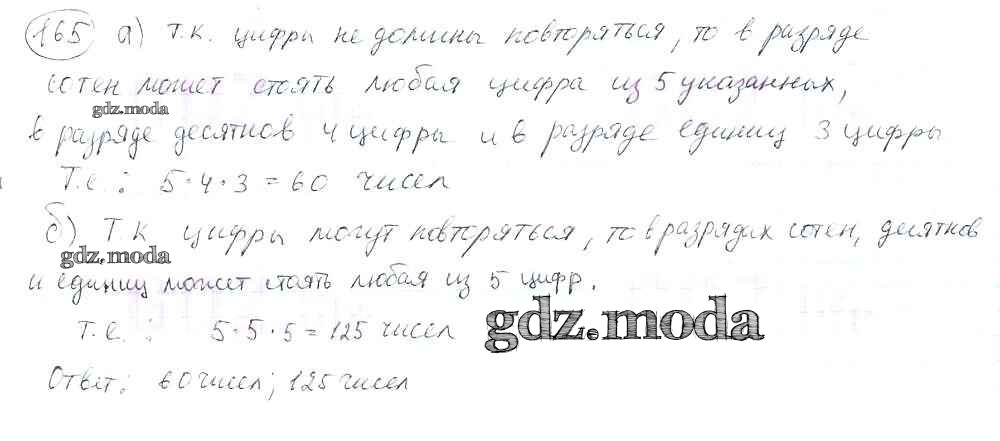 165 а) Т.к. цифры не должны повторяться, то в разряде
сотен может стоять любая цифра из 5 указанных,
gdz.moda
в разряде десятков 4 цифры и в разряде единиц 3 цифры
Т.е.: 5·4·3=60 чисел
б) Т.к. цифры могут повторяться, то в разрядах сотен, десятков
gdz.moda
и единиц может стоять любая из 5 цифр.
Т.е.: 5·5·5=125 чисел
gdz.moda
Ответ: 60 чисел; 125 чисел